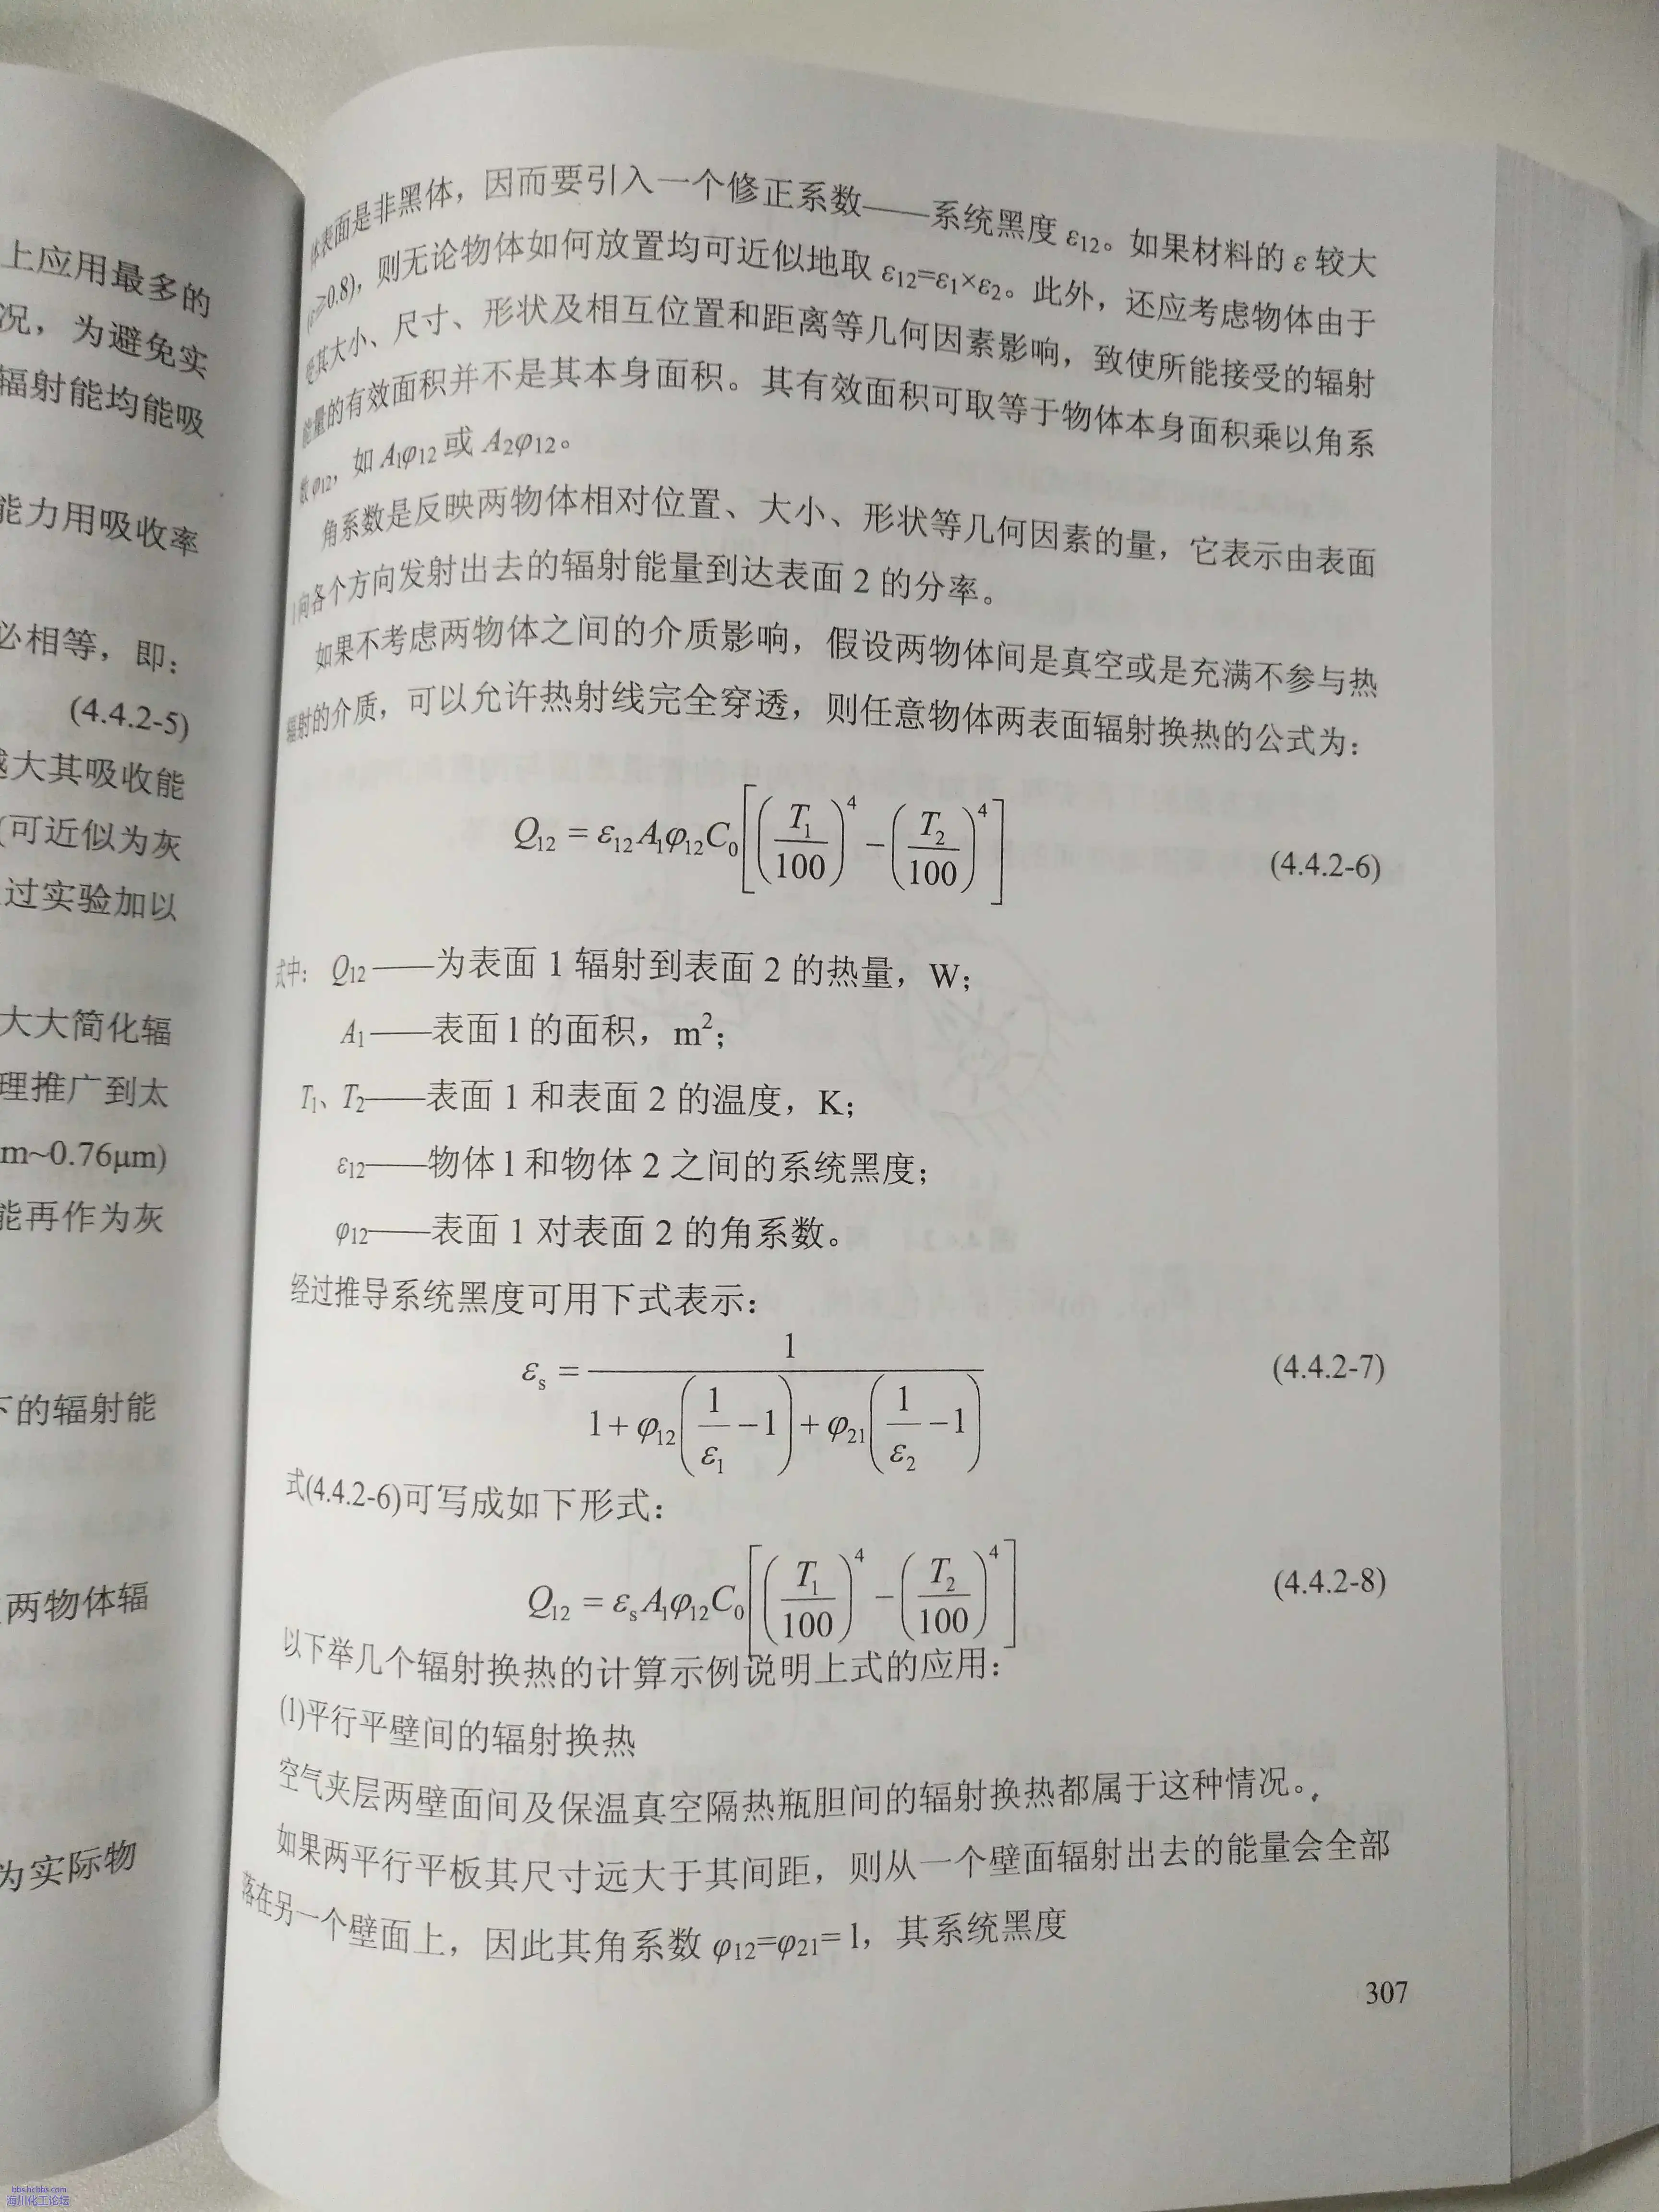 上应用最多的
况，为避免实
辐射能均能吸
能力用吸收率
必相等，即：
(4.4.2-5)
越大其吸收能
(可近似为灰
过实验加以
大大简化辐
理推广到太
m~0.76μm)
能再作为灰
下的辐射能
两物体辐
为实际物
体表面是非黑体，因而要引入一个修正系数——系统黑度 ε12。如果材料的 ε 较大
(ε≥0.8)，则无论物体如何放置均可近似地取 ε12=ε1×ε2。此外，还应考虑物体由于
其大小、尺寸、形状及相互位置和距离等几何因素影响，致使所能接受的辐射
能量的有效面积并不是其本身面积。其有效面积可取等于物体本身面积乘以角系
数 φ12，如 A1φ12 或 A2φ12。
角系数是反映两物体相对位置、大小、形状等几何因素的量，它表示由表面
1 向各个方向发射出去的辐射能量到达表面 2 的分率。
如果不考虑两物体之间的介质影响，假设两物体间是真空或是充满不参与热
辐射的介质，可以允许热射线完全穿透，则任意物体两表面辐射换热的公式为：
Q12 = ε12A1φ12C0[(T1/100)^4 − (T2/100)^4] (4.4.2-6)
式中：Q12——为表面 1 辐射到表面 2 的热量，W；
A1——表面 1 的面积，m²；
T1、T2——表面 1 和表面 2 的温度，K；
ε12——物体 1 和物体 2 之间的系统黑度；
φ12——表面 1 对表面 2 的角系数。
经过推导系统黑度可用下式表示：
εs = 1/(1+φ12(1/ε1 −1)+φ21(1/ε2 −1)) (4.4.2-7)
式(4.4.2-6)可写成如下形式：
Q12 = εsA1φ12C0[(T1/100)^4 − (T2/100)^4] (4.4.2-8)
以下举几个辐射换热的计算示例说明上式的应用：
(1)平行平壁间的辐射换热
空气夹层两壁面间及保温真空隔热瓶胆间的辐射换热都属于这种情况。
如果两平行平板其尺寸远大于其间距，则从一个壁面辐射出去的能量会全部
落在另一个壁面上，因此其角系数 φ12=φ21= 1，其系统黑度
307
bbs.hcbbs.com
海川化工论坛